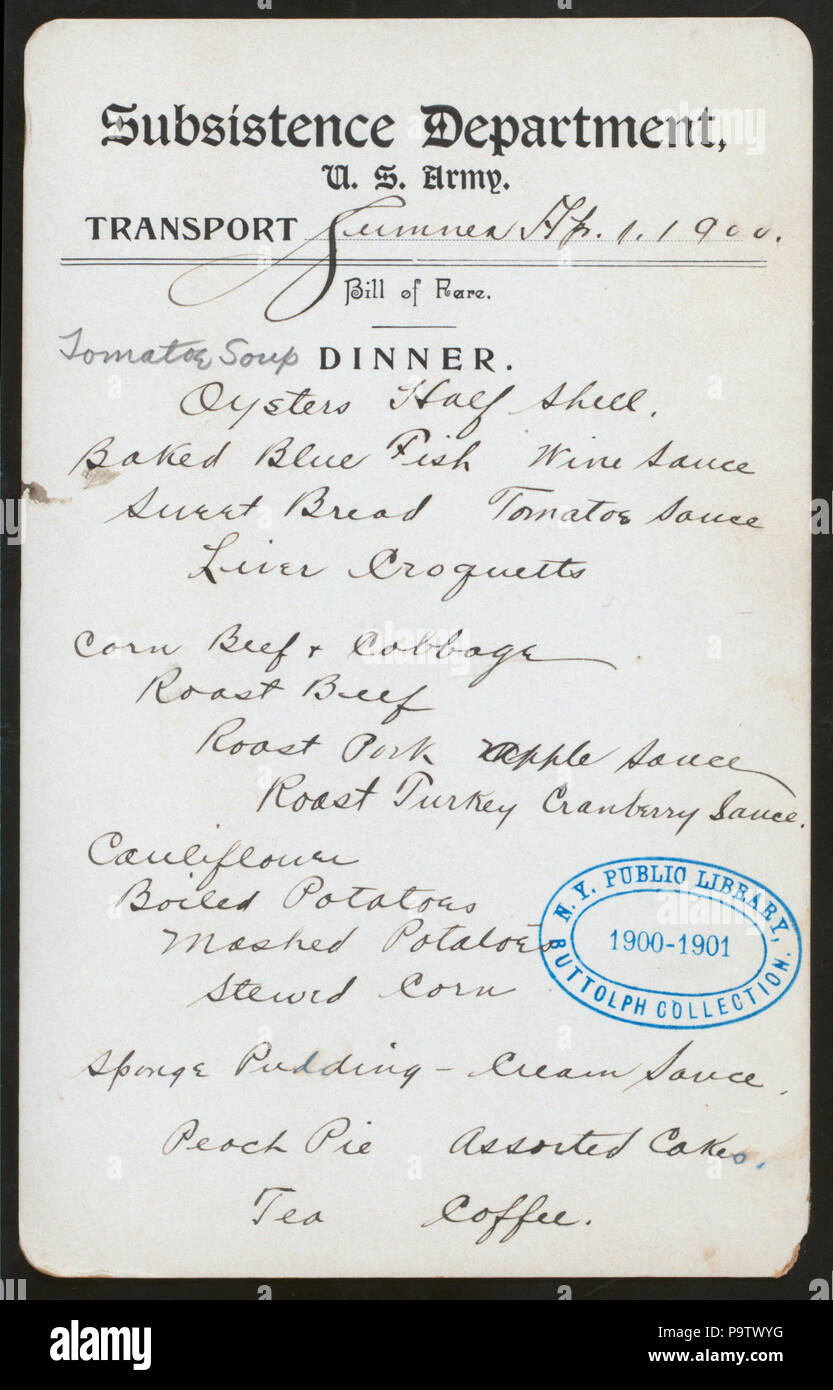 Subsistence Department,
U. S. Army.
TRANSPORT Sumner Ap. 1. 1900.
Bill of Fare.
Tomatoe Soup DINNER.
Oysters Half Shell.
Baked Blue Fish Wine Sauce
Sweet Bread Tomatoe Sauce
Liver Croquetts
Corn Beef + Cabbage
Roast Beef
Roast Pork apple Sauce
Roast Turkey Cranberry Sauce.
Cauliflower
Boiled Potatoes
Mashed Potatoes
Stewed Corn
N. Y. PUBLIC LIBRARY,
1900-1901
BUTTOLPH COLLECTION.
Sponge Pudding - Cream Sauce.
Peach Pie Assorted Cakes.
Tea Coffee.
alamy
Image ID: P9TWYG
www.alamy.com